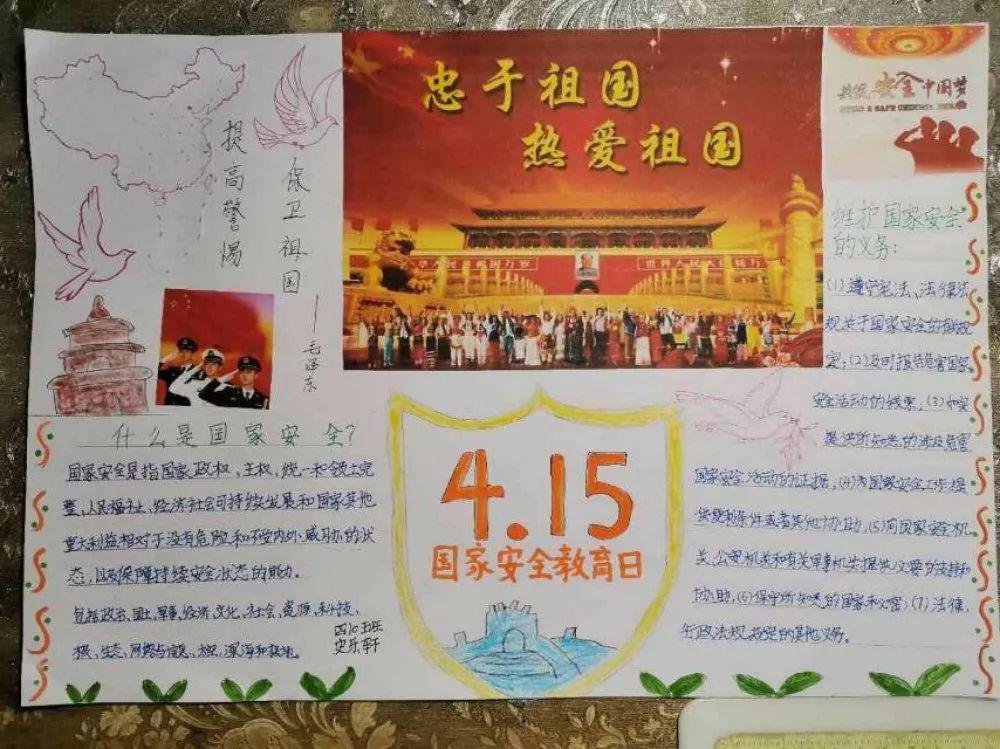 提高警惕
保卫祖国
——毛泽东
忠于祖国
热爱祖国
共筑安全中国梦
什么是国家安全?
国家安全是指国家政权、主权、统一和领土完
整、人民福祉、经济社会可持续发展和国家其他
重大利益相对于没有危险和不受内外威胁的状
态,以及保障持续安全状态的能力。
包括政治、国土、军事、经济、文化、社会、资源、科技、
核、生态、网络与信息、太空、深海和极地。
四(5)班
史乐轩
4.15
国家安全教育日
维护国家安全
的义务:
(1)遵守宪法、法律法
规关于国家安全的有关规
定;(2)及时报告危害国家
安全活动的线索;(3)如实
提供所知悉的涉及危害
国家安全活动的证据;(4)为国家安全工作提
供便利条件或者其他协助;(5)向国家安全机
关、公安机关和有关军事机关提供必要的支持和
协助;(6)保守所知悉的国家秘密;(7)法律、
行政法规规定的其他义务。